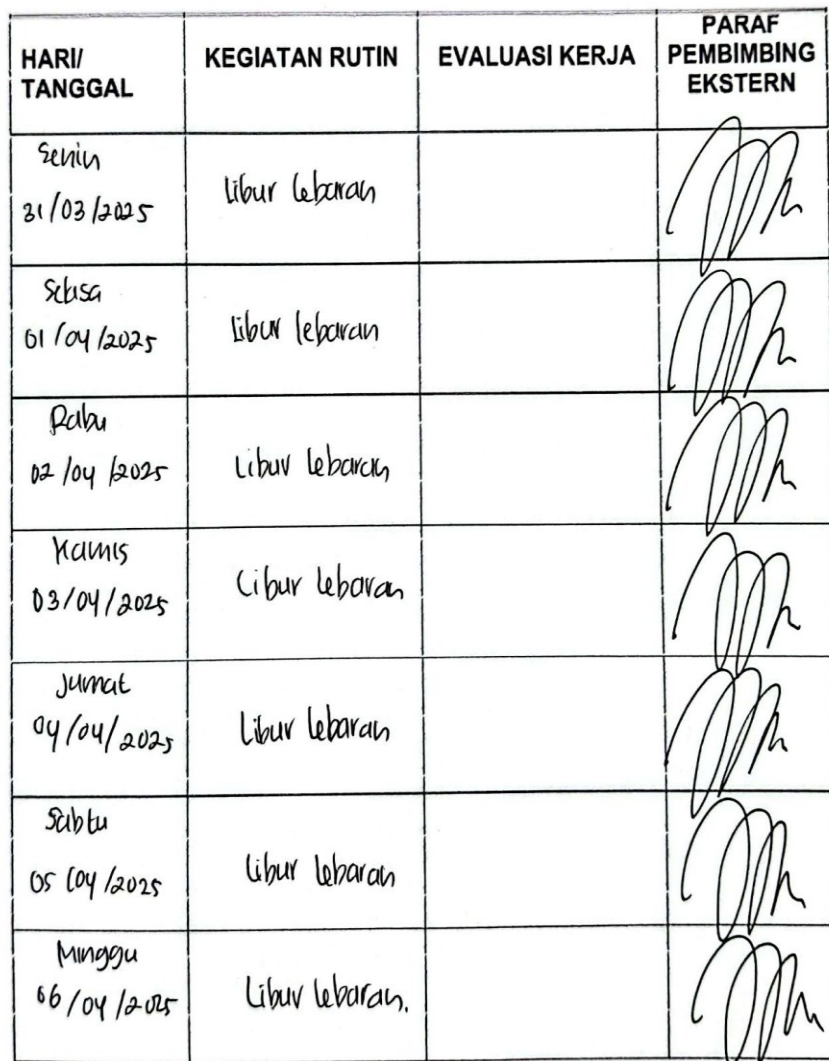 HARI/ TANGGAL KEGIATAN RUTIN EVALUASI KERJA PARAF PEMBIMBING EKSTERN
Senin
31/03/2025 Libur lebaran
Selasa
01/04/2025 Libur lebaran
Rabu
02/04/2025 Libur lebaran
Kamis
03/04/2025 Libur lebaran
Jumat
04/04/2025 Libur lebaran
Sabtu
05/04/2025 Libur lebaran
Minggu
06/04/2025 Libur lebaran.